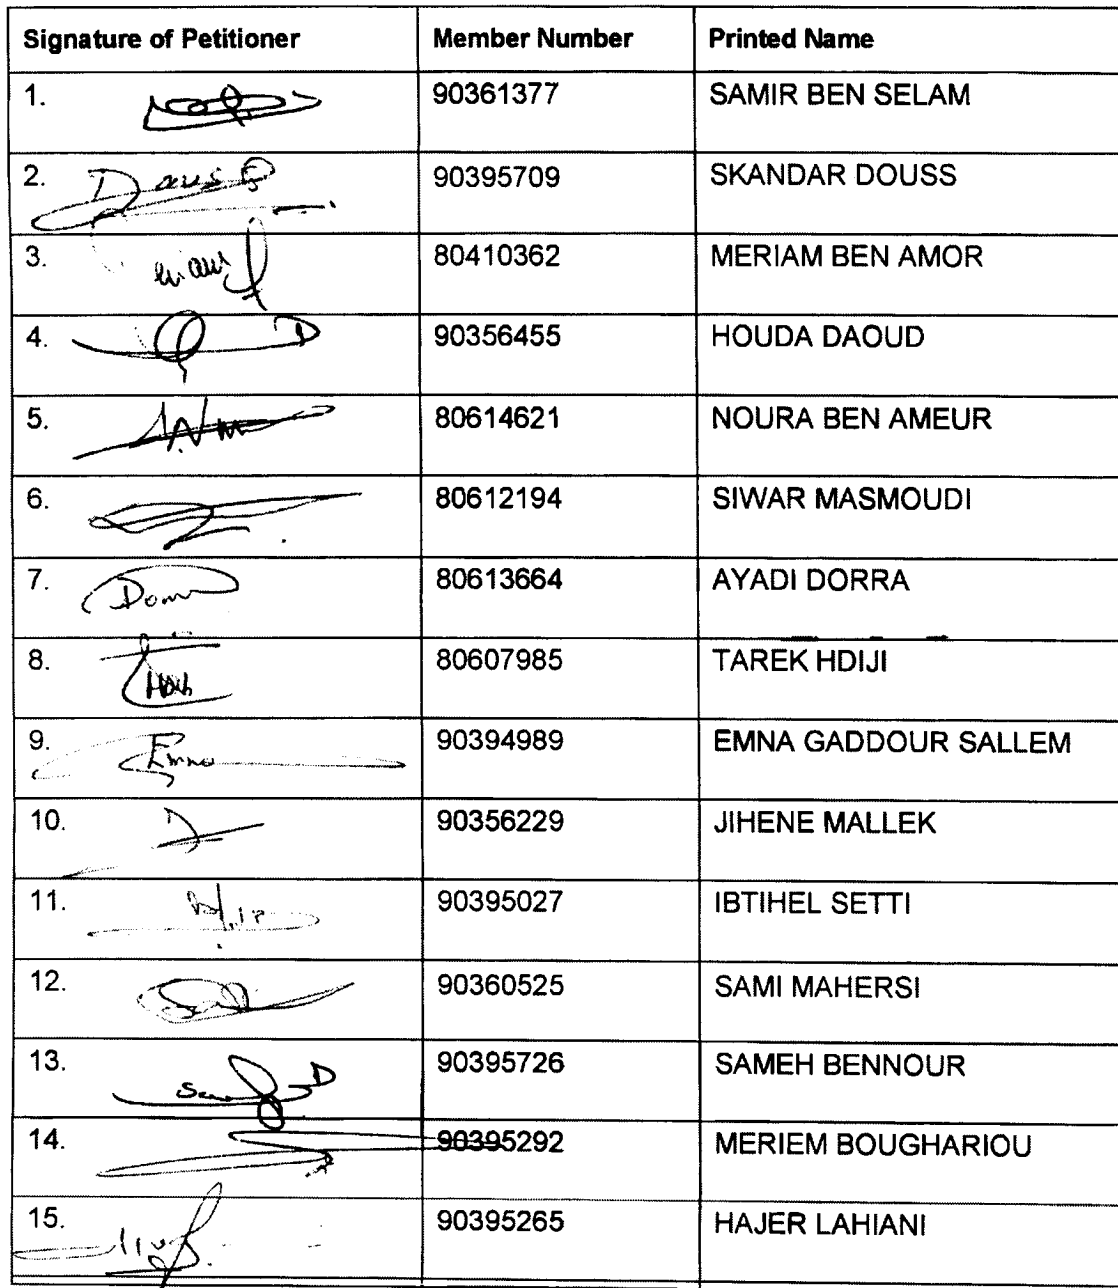 Signature of Petitioner Member Number Printed Name
1. 90361377 SAMIR BEN SELAM
2. Douss 90395709 SKANDAR DOUSS
3. 80410362 MERIAM BEN AMOR
4. 90356455 HOUDA DAOUD
5. 80614621 NOURA BEN AMEUR
6. 80612194 SIWAR MASMOUDI
7. 80613664 AYADI DORRA
8. 80607985 TAREK HDIJI
9. Emna 90394989 EMNA GADDOUR SALLEM
10. 90356229 JIHENE MALLEK
11. 90395027 IBTIHEL SETTI
12. 90360525 SAMI MAHERSI
13. 90395726 SAMEH BENNOUR
14. 90395292 MERIEM BOUGHARIOU
15. 90395265 HAJER LAHIANI